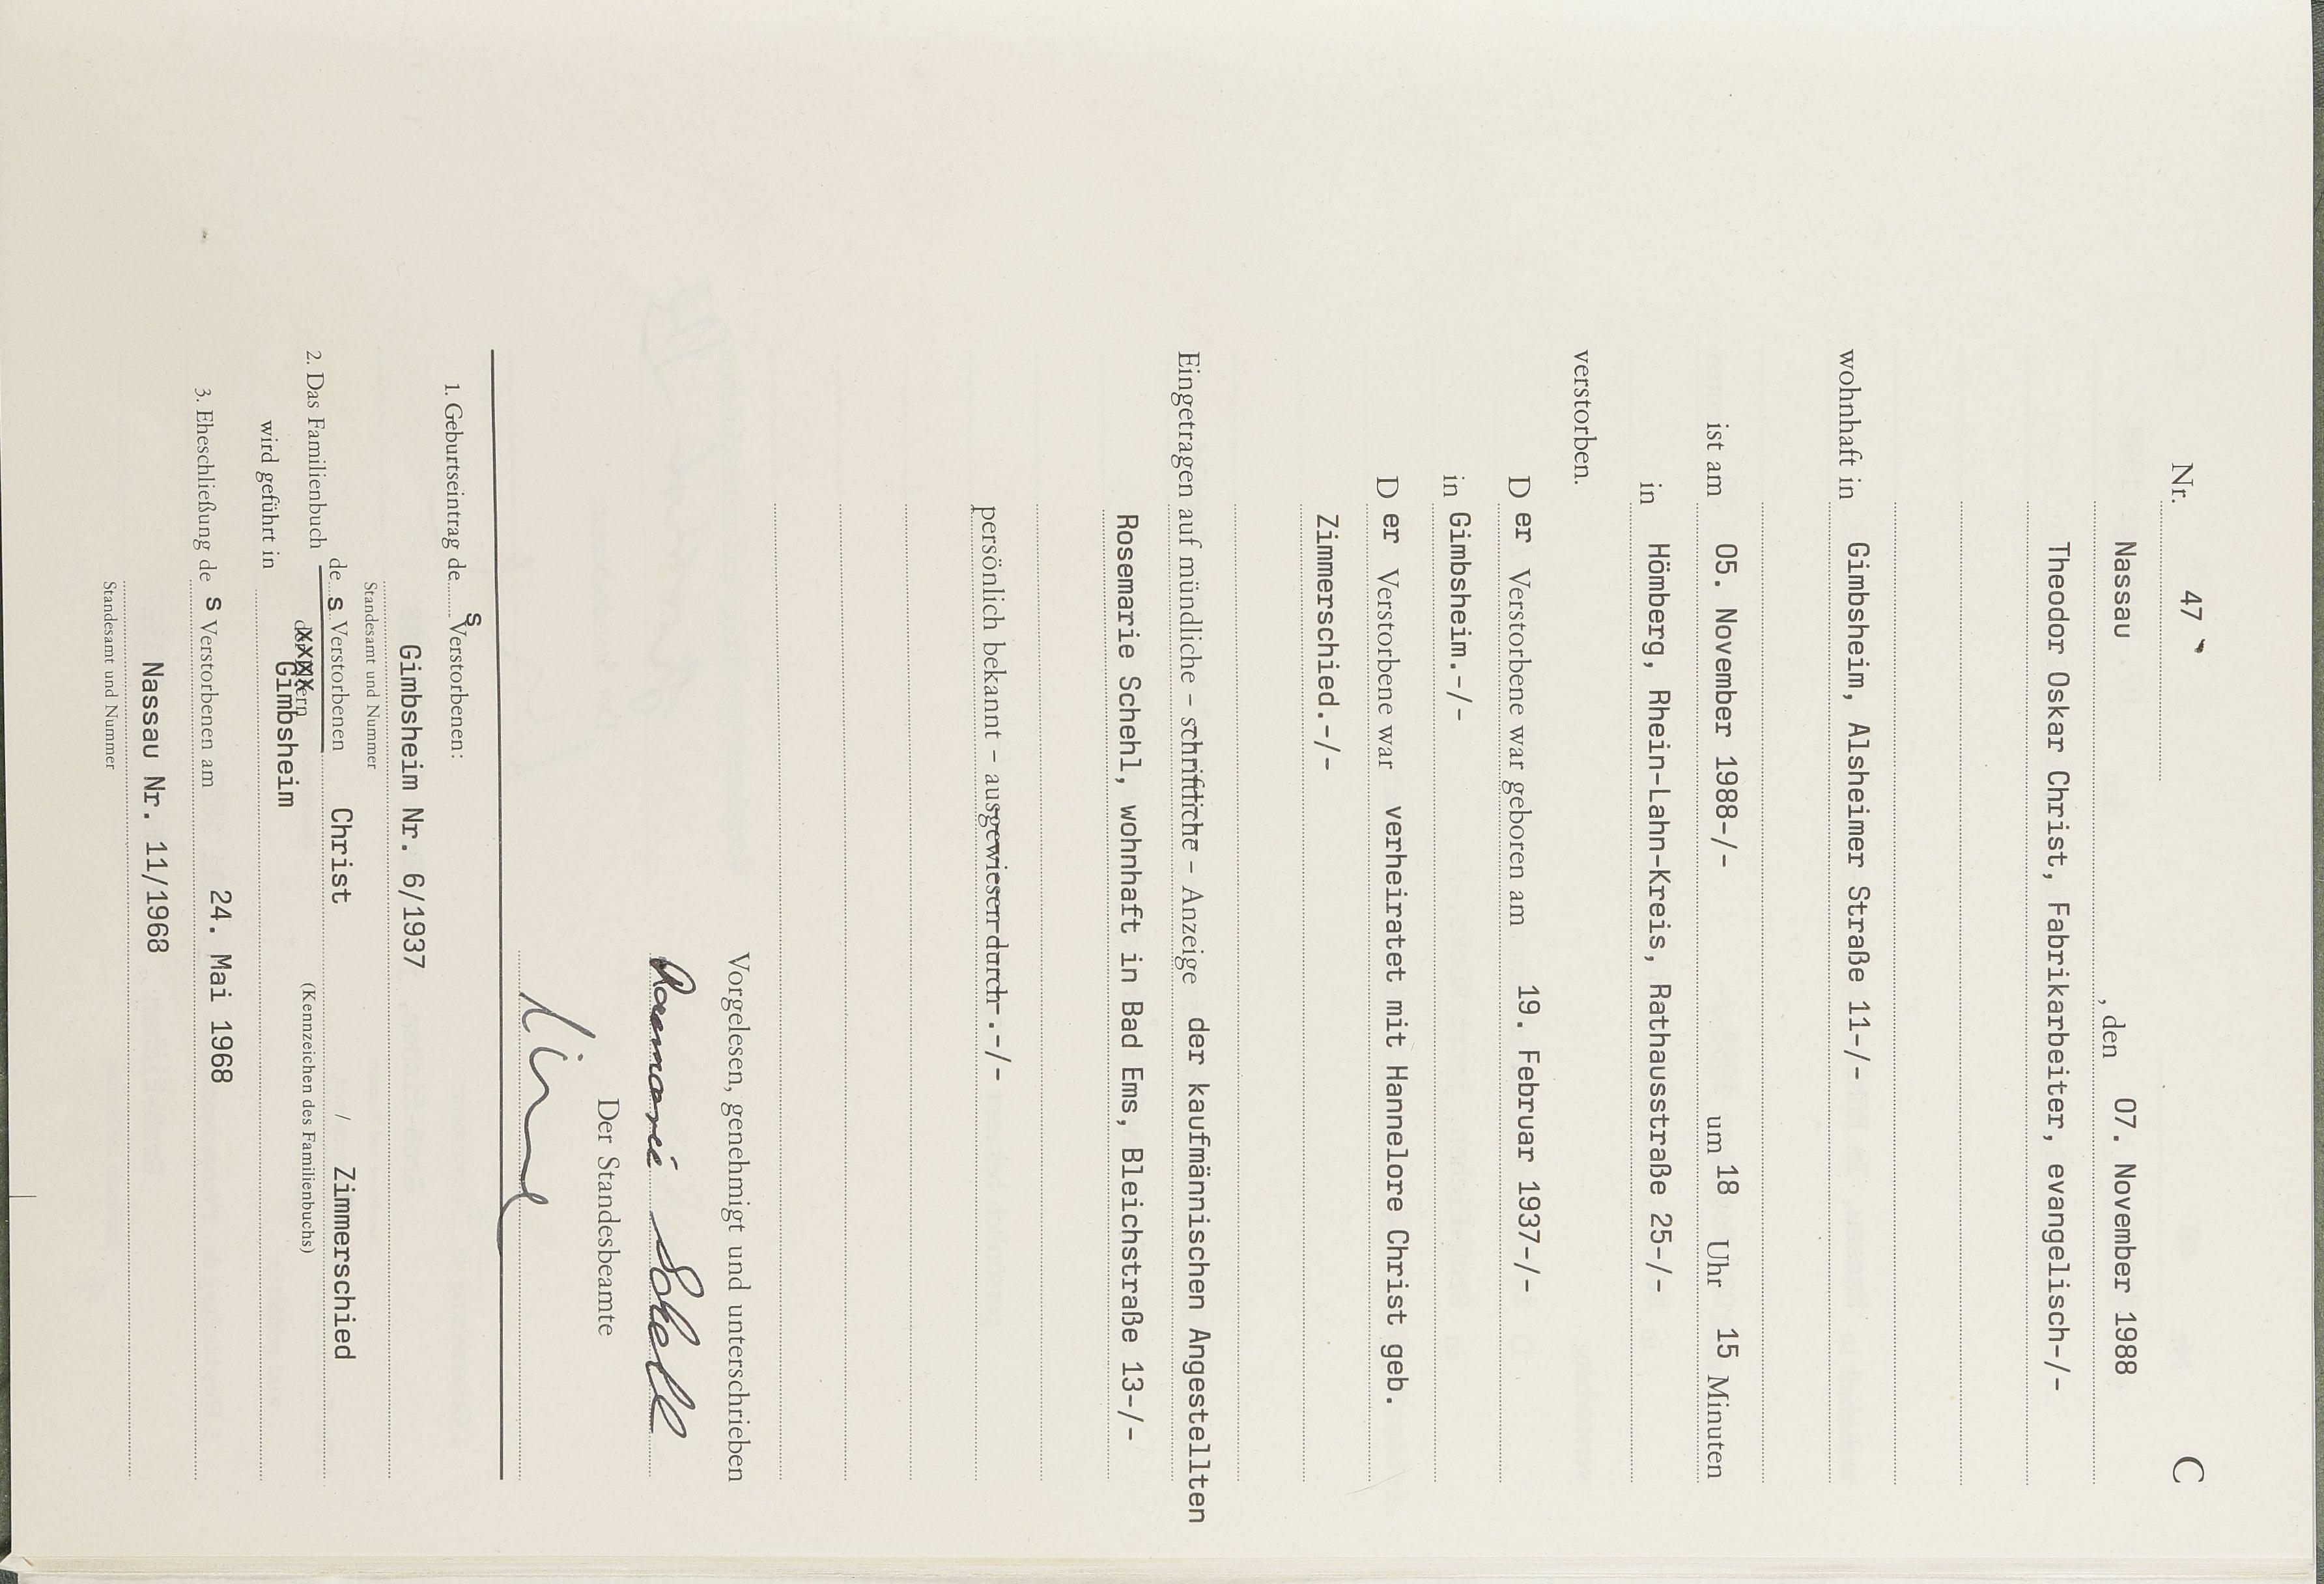 Nr. 47 C
Nassau, den 07. November 1988
Theodor Oskar Christ, Fabrikarbeiter, evangelisch-/-
wohnhaft in Gimbsheim, Alsheimer Straße 11-/-
ist am 05. November 1988-/- um 18 Uhr 15 Minuten
in Hömberg, Rhein-Lahn-Kreis, Rathausstraße 25-/-
verstorben.
D er Verstorbene war geboren am 19. Februar 1937-/-
in Gimbsheim.-/-
D er Verstorbene war verheiratet mit Hannelore Christ geb.
Zimmerschied.-/-
Eingetragen auf mündliche – schriftliche – Anzeige der kaufmännischen Angestellten
Rosemarie Schehl, wohnhaft in Bad Ems, Bleichstraße 13-/-
persönlich bekannt – ausgewiesen durch .-/-
Vorgelesen, genehmigt und unterschrieben
Rosemarie Schehl
Der Standesbeamte
1. Geburtseintrag des Verstorbenen:
Gimbsheim Nr. 6/1937
Standesamt und Nummer
2. Das Familienbuch des Verstorbenen Christ / Zimmerschied
(Kennzeichen des Familienbuchs)
wird geführt in Gimbsheim
3. Eheschließung des Verstorbenen am 24. Mai 1968
Nassau Nr. 11/1968
Standesamt und Nummer